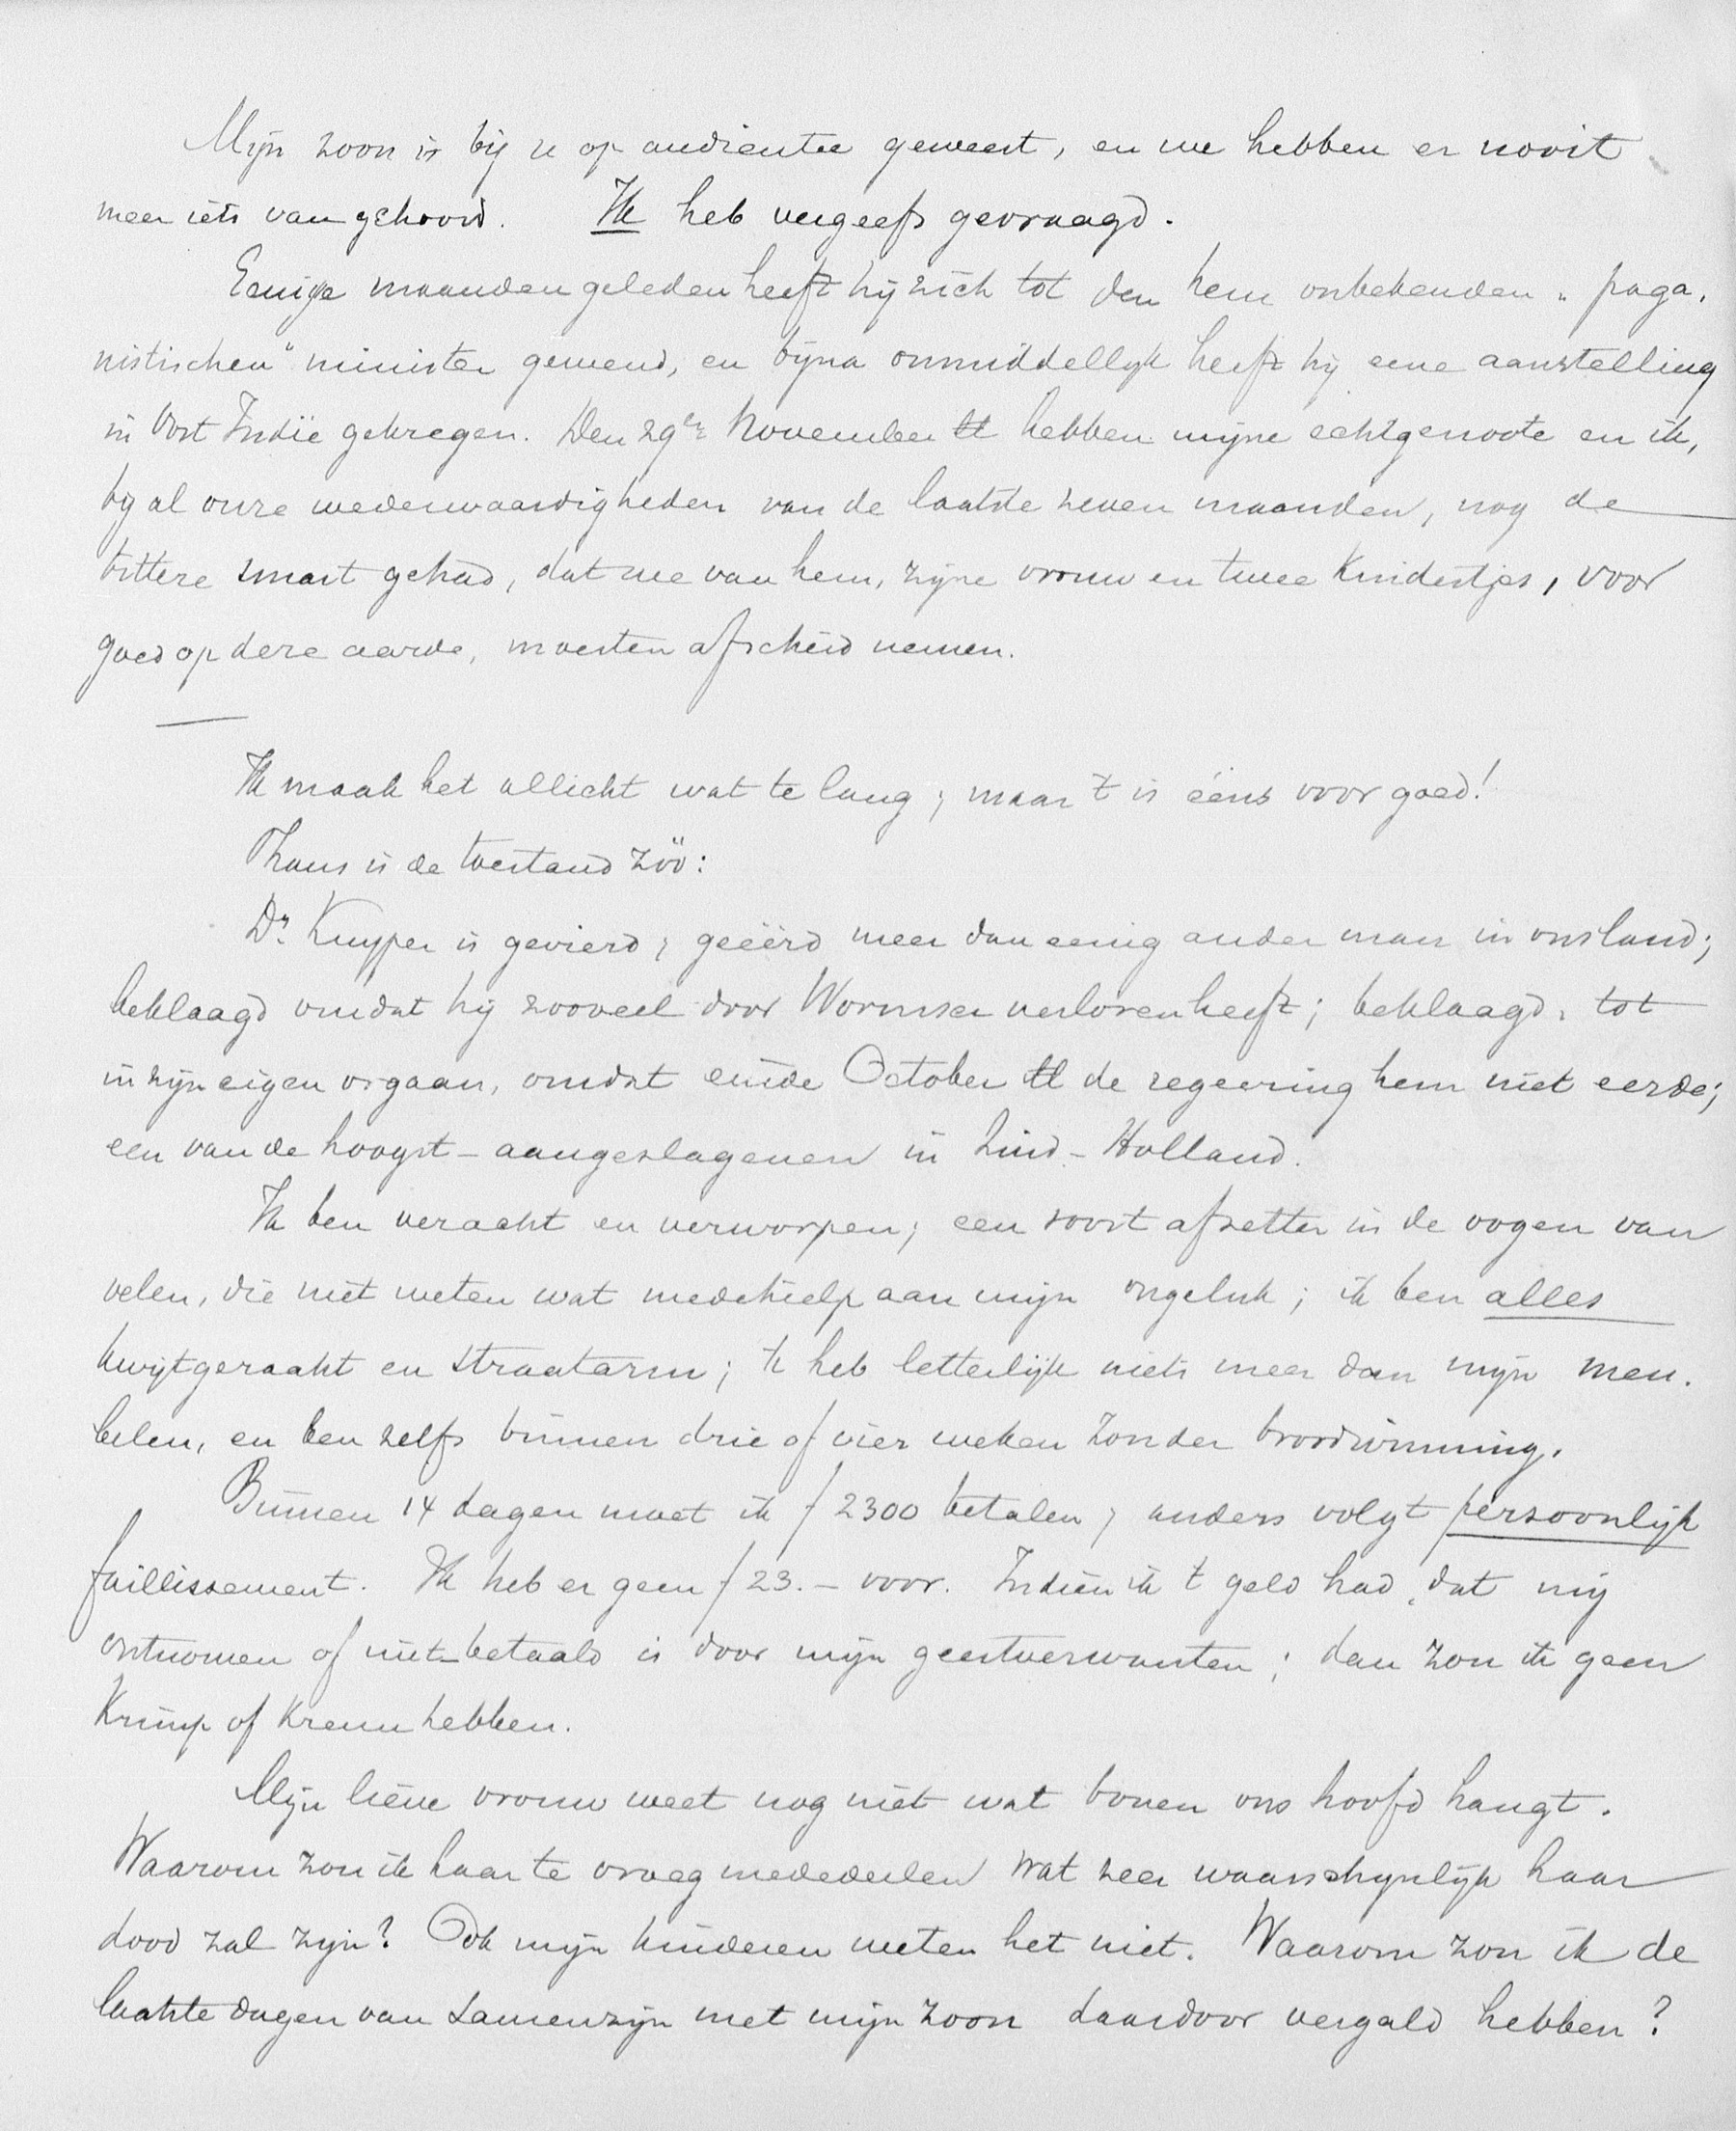 Mijn zoon is bij u op audientie geweest, en we hebben er nooit
meer iets van gehoord. Ik heb vergeefs gevraagd.
Eenige maanden geleden heeft hij zich tot den hem onbekenden „paga-
nistischen" minister gewend, en bijna onmiddellijk heeft hij eene aanstelling
in Oost Indië gekregen. Den 29en November ll hebben mijne echtgenoote en ik,
bij al onze wederwaardigheden van de laatste zeven maanden, nog de
bittere smart gehad, dat we van hem, zijne vrouw en twee kindertjes, voor
goed op deze aarde, moesten afscheid nemen.
Ik maak het allicht wat te lang; maar t is ééns voor goed!
Thans is de toestand zóó:
Dr. Kuyper is gevierd, geëerd meer dan eenig ander man in ons land;
beklaagd omdat hij zooveel door Wormser verloren heeft; beklaagd, tot
in zijn eigen orgaan, omdat einde October ll de regeering hem niet eerde;
een van de hoogst-aangeslagenen in Zuid-Holland.
Ik ben veracht en verworpen; een soort afzetter in de oogen van
velen, die niet weten wat medehielp aan mijn ongeluk; ik ben alles
kwijtgeraakt en straatarm; ik heb letterlijk niets meer dan mijn meu-
belen, en ben zelfs binnen drie of vier weken zonder broodwinning.
Binnen 14 dagen moet ik f 2300 betalen, anders volgt persoonlijk
faillissement. Ik heb er geen f 23.- voor. Indien ik t geld had, dat mij
ontnomen of niet-betaald is door mijn geestverwanten; dan zou ik geen
Krimp of Kreun hebben.
Mijn lieve vrouw weet nog niet wat boven ons hoofd hangt.
Waarom zou ik haar te vroeg mededeelen wat zeer waarschijnlijk haar
dood zal zijn? Ook mijn kinderen weten het niet. Waarom zou ik de
laatste dagen van samenzijn met mijn zoon daardoor vergald hebben?